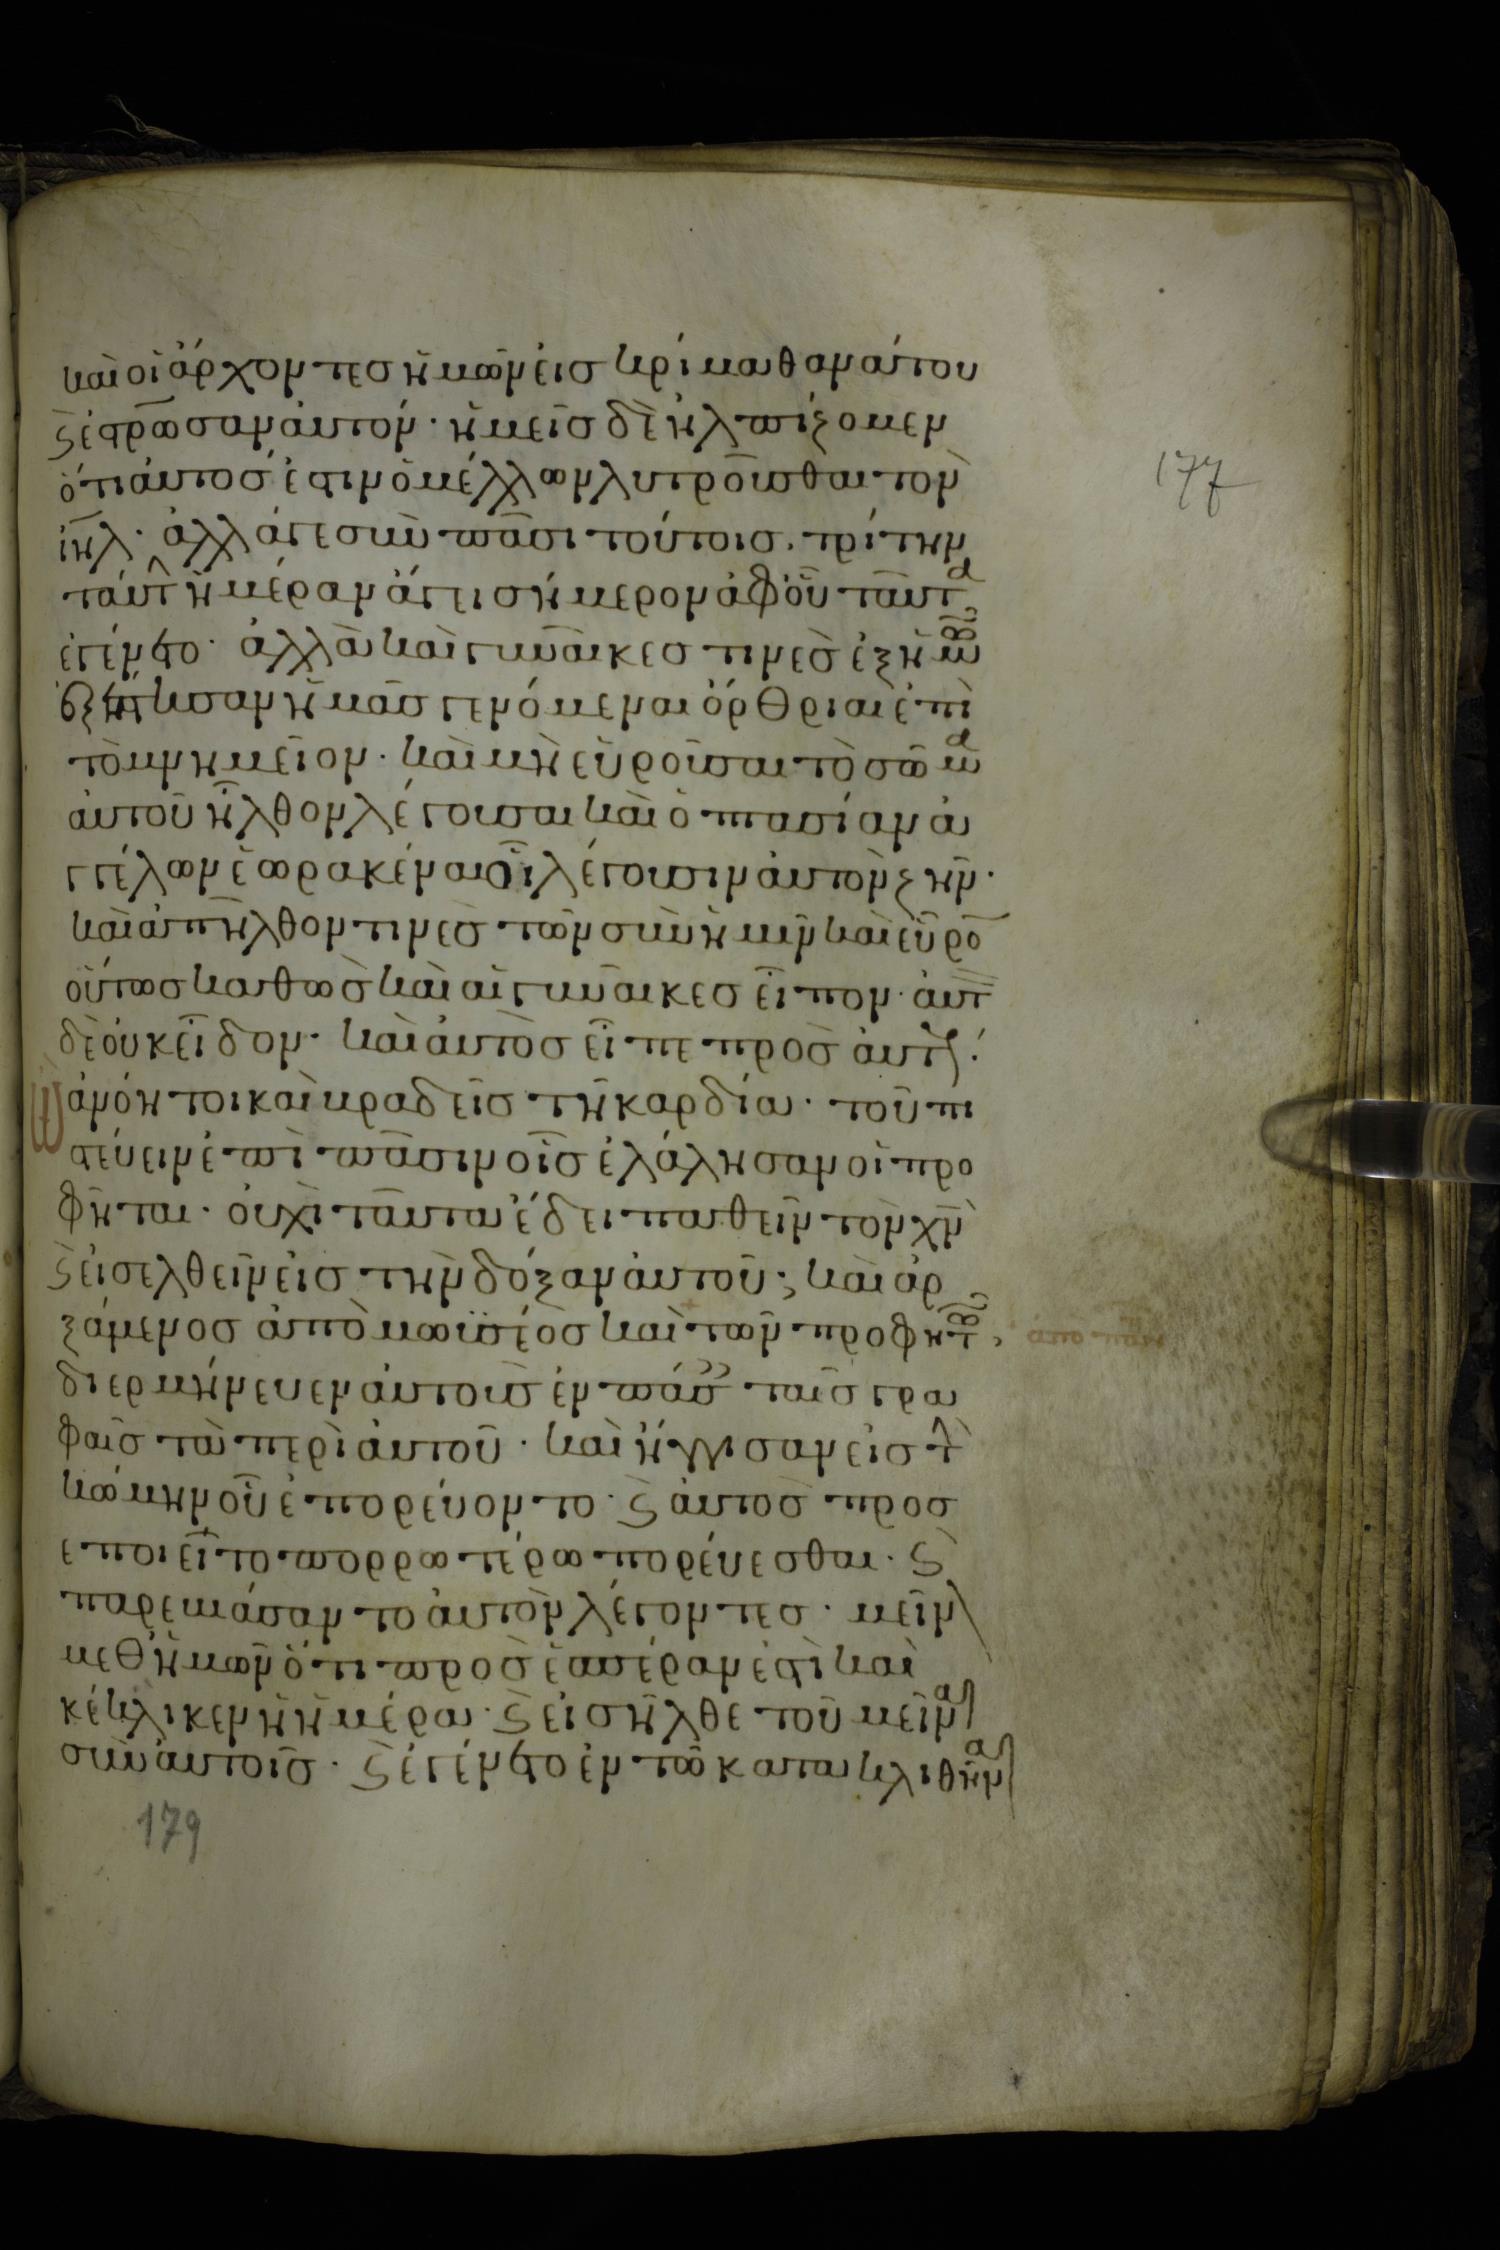 καὶ οἱ ἄρχοντες ἡμῶν εἰς κρίμα θανάτου
ϛ ἐστρωσαν αὐτόν· ἡμεῖς δὲ ἠλπίζομεν
ὅτι αὐτός ἐστιν ὁ μέλλων λυτροῦσθαι τὸν
ιη̅λ· ἀλλά γε σὺν πᾶσι τούτοις· τρίτην
ταύτ ἡμέραν ἄγει σήμερον ἀφοῦ ταῦτα
ἐγένετο· ἀλλὰ καὶ γυναῖκες τινὲς ἐξ ἡμῶν
ἐξέστησαν ἡμᾶς γενόμεναι ὄρθριαι ἐπὶ
τὸ μνημεῖον· καὶ μὴ εὑροῦσαι τὸ σῶμα
αὐτοῦ ἦλθον λέγουσαι καὶ ὀπτασίαν ἀγ
γέλων ἑωρακέναι οἳ λέγουσιν αὐτὸν ζῆν·
καὶ ἀπῆλθον τινὲς τῶν σὺν ἡμῖν καὶ εὗρο
οὕτως καθὼς καὶ αἱ γυναῖκες εἶπον· αὐτ
δὲ οὐκ εἶδον· καὶ αὐτὸς εἶπε πρὸς αὐτ·
Ὦ ἀνόητοι καὶ βραδεῖς τῇ καρδίᾳ· τοῦ πι
στεύειν ἐπὶ πᾶσιν οἷς ἐλάλησαν οἱ προ
φῆται· οὐχὶ ταῦτα ἔδει παθεῖν τὸν χν̅
ϛ εἰσελθεῖν εἰς τὴν δόξαν αὐτοῦ; καὶ ἀρ
ξάμενος ἀπὸ μωϋσέος καὶ τῶν προφητῶν,
διερμήνευεν αὐτοῖς ἐν πάσ ταῖς γρα
φαῖς τὰ περὶ αὐτοῦ· καὶ ἤγγισαν εἰς τὴν
κώμην οὗ ἐπορεύοντο· ϛ αὐτὸς προσ
εποιεῖτο πορρωτέρω πορεύεσθαι· ϛ
παρεβιάσαντο αὐτὸν λέγοντες· μεῖν
μεθ ἡμῶν ὅτι πρὸς ἑσπέραν ἐστὶ καὶ
κέκλικεν ἡ ἡμέρα· ϛ εἰσῆλθε τοῦ μεῖν
σὺν αὐτοῖς· ϛ ἐγένετο ἐν τῷ κατακλιθῆν
177
179